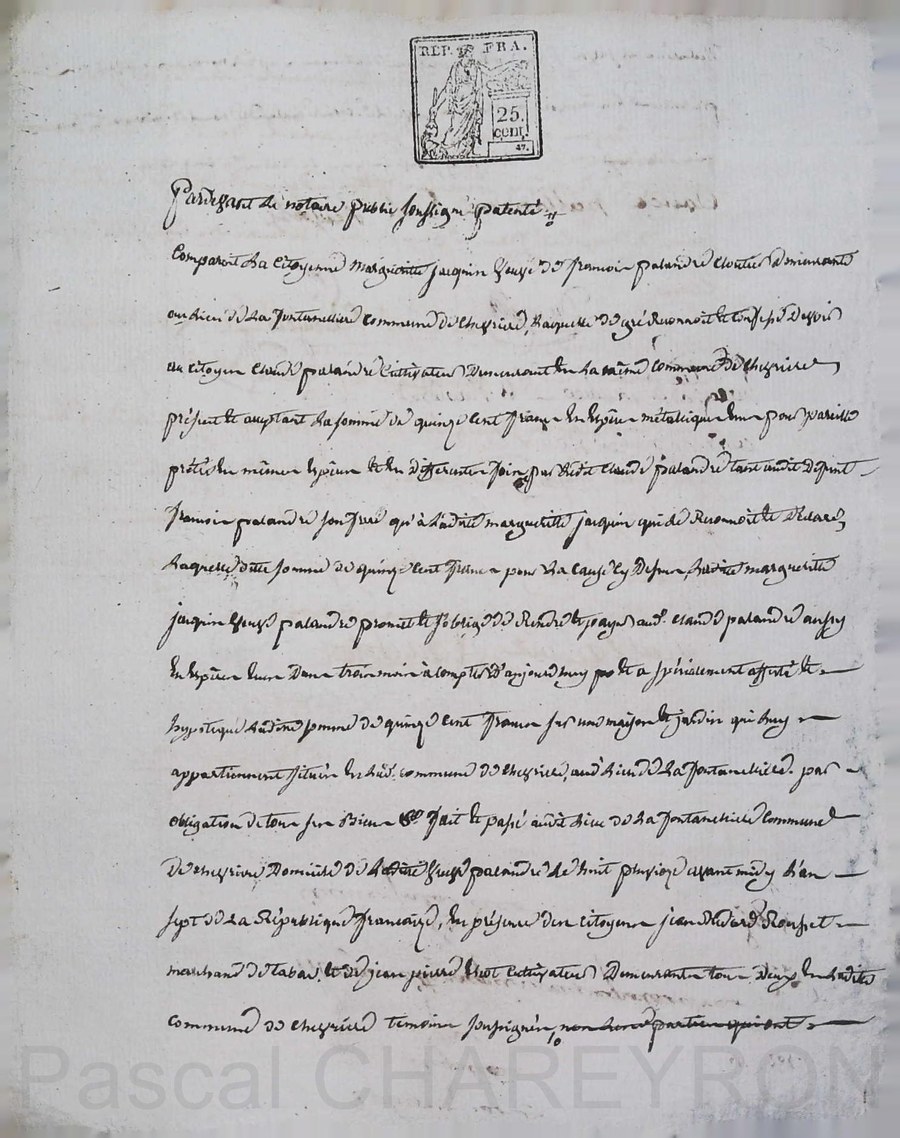 REP. FRA.
25.
cent.
47.
Pardevant le notaire public soussigné patenté
Comparoit la Citoyenne margueritte jacquin veuve de francois palandre cloutier demeurante
au lieu de la fontanellierre commune de chevriere, laquelle de gré reconnoit et confesse devoir
au citoyen claude palandre Cultivateur demeurant en la même commune de chevriere
présent et acceptant la somme de quinze cent francs en espèces métallique pour pareille
prêtée en mêmes espèces et en differentes fois par ledit claude palandre tant audit défunt
francois palandre son frere qu'à ladite margueritte jacquin qui le reconnoit et déclare,
laquelle ditte somme de quinze cent francs pour la cause cy dessus ladite margueritte
jacquin veuve palandre promet et s'oblige de rendre et payer aud. claude palandre aussy
en espèces dans trois mois à compter d'aujourdhuy et a spécialement affecté et
hypotequé ladite somme de quinze cent francs sur une maison et jardin qui luy
appartiennent situés en lad. commune de chevriere, aud. lieu de la fontanelliere. par
obligation de tous ses biens fait et passé audit lieu de la fontanelliere Commune
de chevriere Domicile de ladite veuve palandre le huit pluviôze avant midy l'an
sept de la République francaize, en présence des citoyens jean
marchand de tabac, et de jean pierre cultivateur Demeurants tous deux en ladite
commune de chevriere temoins soussignés, non lad. partie
Pascal CHAREYRON